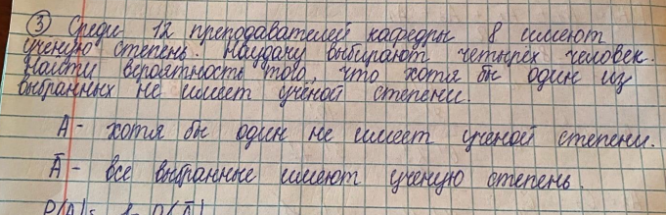 ③ Среди 12 преподавателей кафедры 8 имеют
ученую степень. Наудачу выбирают четырех человек.
Найти вероятность того, что хотя бы один из
выбранных не имеет учёной степени.
A - хотя бы один не имеет ученой степени.
Ā - все выбранные имеют ученую степень.
P(A) = 1 - P(Ā)